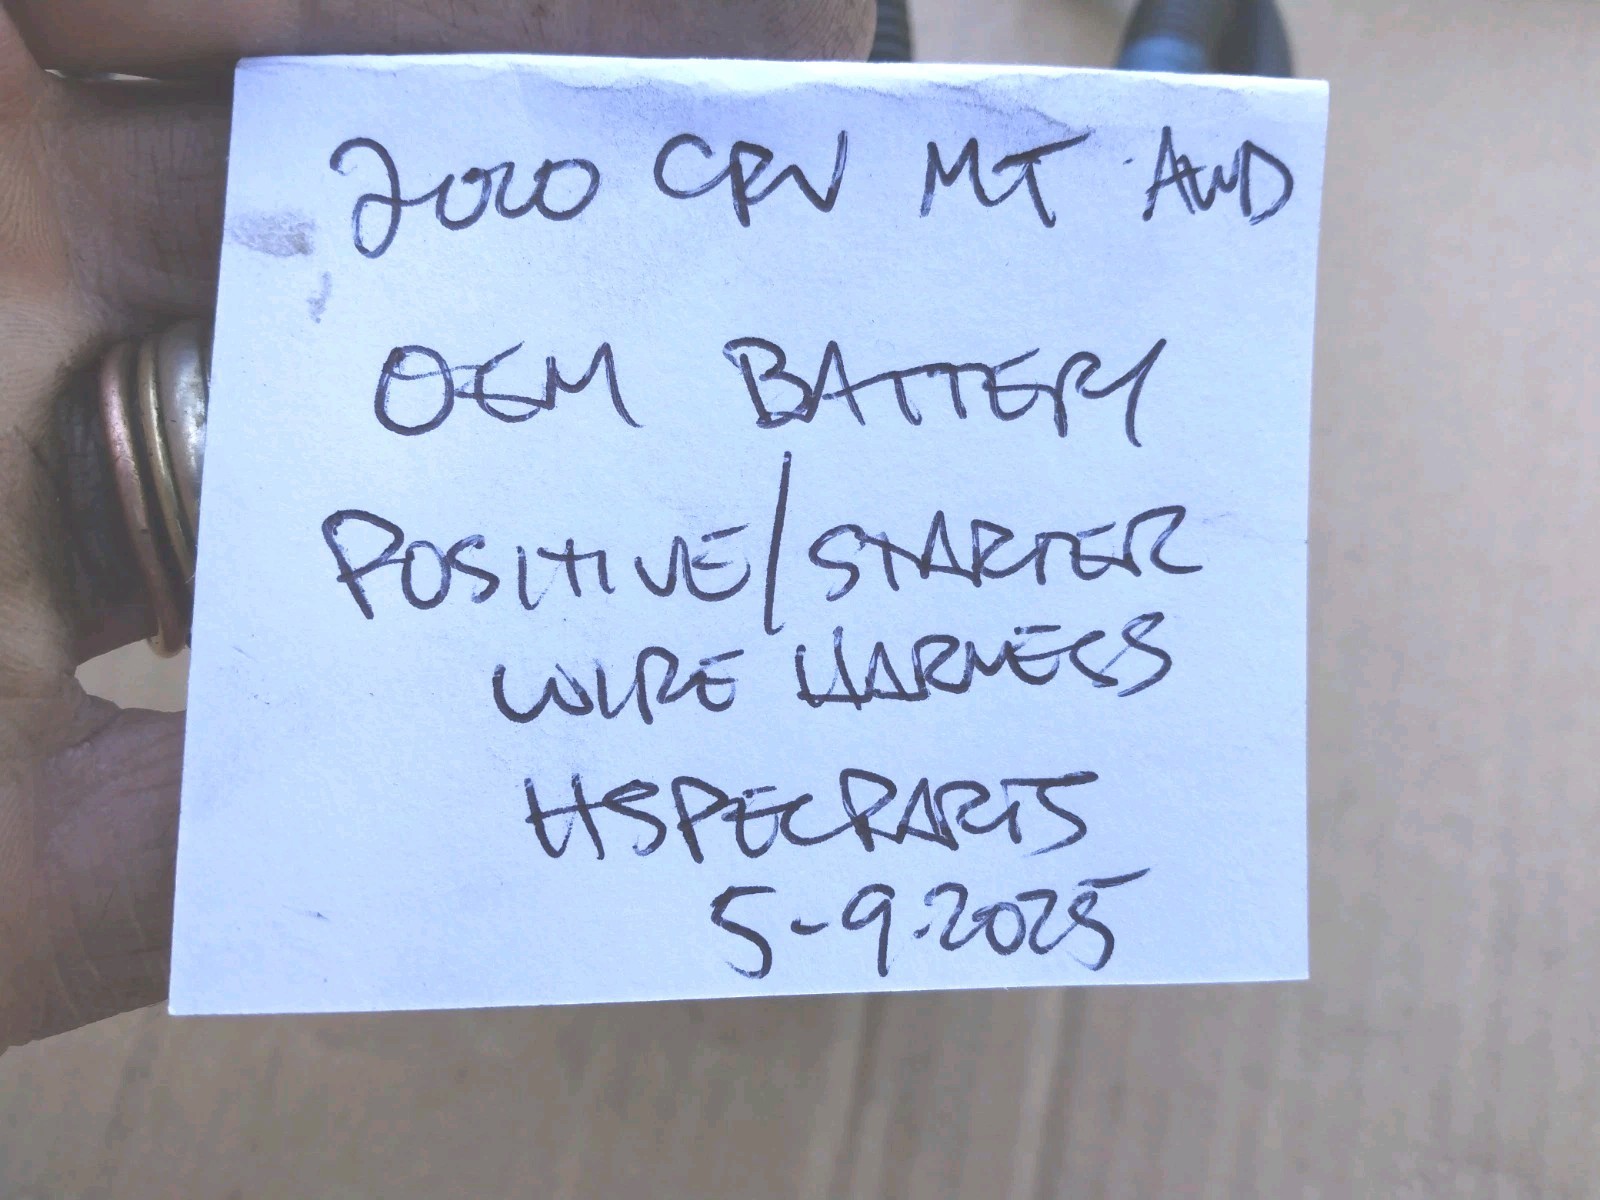 2020 CRV MT AWD
OEM BATTERY
POSITIVE/STARTER
WIRE HARNESS
HSPECPARTS
5-9-2025